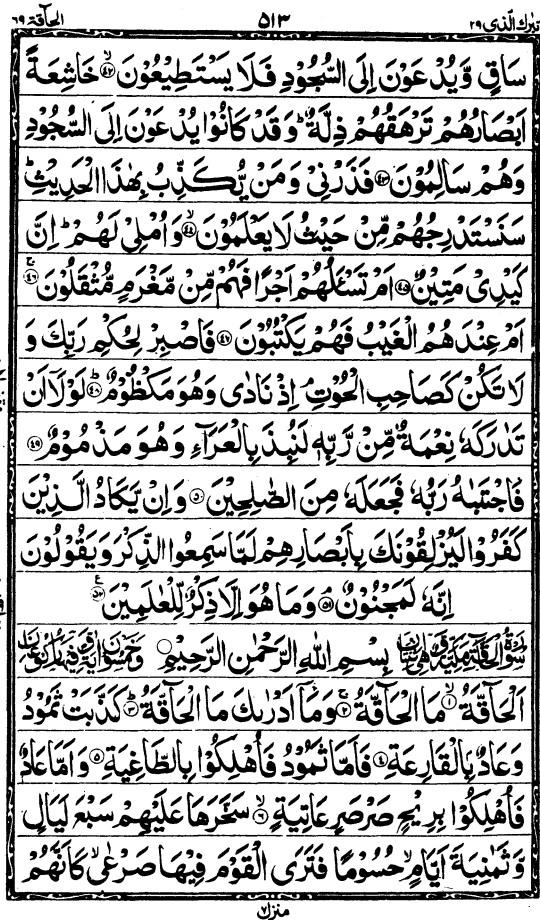 تبٰرك الّذی ٢٩ ٥١٣ الحآقة ٦٩
سَاقٍ وَّيُدْعَوْنَ اِلَى السُّجُوْدِ فَلَا يَسْتَطِيْعُوْنَ ۙ﴿٤٢﴾ خَاشِعَةً
اَبْصَارُهُمْ تَرْهَقُهُمْ ذِلَّةٌ ؕ وَقَدْ كَانُوْا يُدْعَوْنَ اِلَى السُّجُوْدِ
وَهُمْ سَالِمُوْنَ ﴿٤٣﴾ فَذَرْنِيْ وَمَنْ يُّكَذِّبُ بِهٰذَا الْحَدِيْثِ ؕ
سَنَسْتَدْرِجُهُمْ مِّنْ حَيْثُ لَا يَعْلَمُوْنَ ۙ﴿٤٤﴾ وَاُمْلِيْ لَهُمْ ؕ اِنَّ
كَيْدِيْ مَتِيْنٌ ﴿٤٥﴾ اَمْ تَسْـَٔلُهُمْ اَجْرًا فَهُمْ مِّنْ مَّغْرَمٍ مُّثْقَلُوْنَ ۚ﴿٤٦﴾
اَمْ عِنْدَهُمُ الْغَيْبُ فَهُمْ يَكْتُبُوْنَ ﴿٤٧﴾ فَاصْبِرْ لِحُكْمِ رَبِّكَ وَ
لَا تَكُنْ كَصَاحِبِ الْحُوْتِ ۘ اِذْ نَادٰى وَهُوَ مَكْظُوْمٌ ؕ﴿٤٨﴾ لَوْلَاۤ اَنْ
تَدٰرَكَهٗ نِعْمَةٌ مِّنْ رَّبِّهٖ لَنُبِذَ بِالْعَرَآءِ وَهُوَ مَذْمُوْمٌ ﴿٤٩﴾
فَاجْتَبٰىهُ رَبُّهٗ فَجَعَلَهٗ مِنَ الصّٰلِحِيْنَ ﴿٥٠﴾ وَاِنْ يَّكَادُ الَّذِيْنَ
كَفَرُوْا لَيُزْلِقُوْنَكَ بِاَبْصَارِهِمْ لَمَّا سَمِعُوا الذِّكْرَ وَيَقُوْلُوْنَ
اِنَّهٗ لَمَجْنُوْنٌ ۘ﴿٥١﴾ وَمَا هُوَ اِلَّا ذِكْرٌ لِّلْعٰلَمِيْنَ ﴿٥٢﴾
سُوْرَةُ الْحَآقَّةِ مَكِّيَّةٌ وَّهِيَ بِسْمِ اللهِ الرَّحْمٰنِ الرَّحِيْمِ وَّخَمْسُوْنَ اٰيَةً وَّفِيْهَا رُكُوْعَانِ
اَلْحَآقَّةُ ۙ﴿١﴾ مَا الْحَآقَّةُ ۚ﴿٢﴾ وَمَاۤ اَدْرٰىكَ مَا الْحَآقَّةُ ؕ﴿٣﴾ كَذَّبَتْ ثَمُوْدُ
وَعَادٌۢ بِالْقَارِعَةِ ﴿٤﴾ فَاَمَّا ثَمُوْدُ فَاُهْلِكُوْا بِالطَّاغِيَةِ ﴿٥﴾ وَاَمَّا عَادٌ
فَاُهْلِكُوْا بِرِيْحٍ صَرْصَرٍ عَاتِيَةٍ ۙ﴿٦﴾ سَخَّرَهَا عَلَيْهِمْ سَبْعَ لَيَالٍ
وَّثَمٰنِيَةَ اَيَّامٍ ۙ حُسُوْمًا فَتَرَى الْقَوْمَ فِيْهَا صَرْعٰى ۙ كَاَنَّهُمْ
منزل ٧